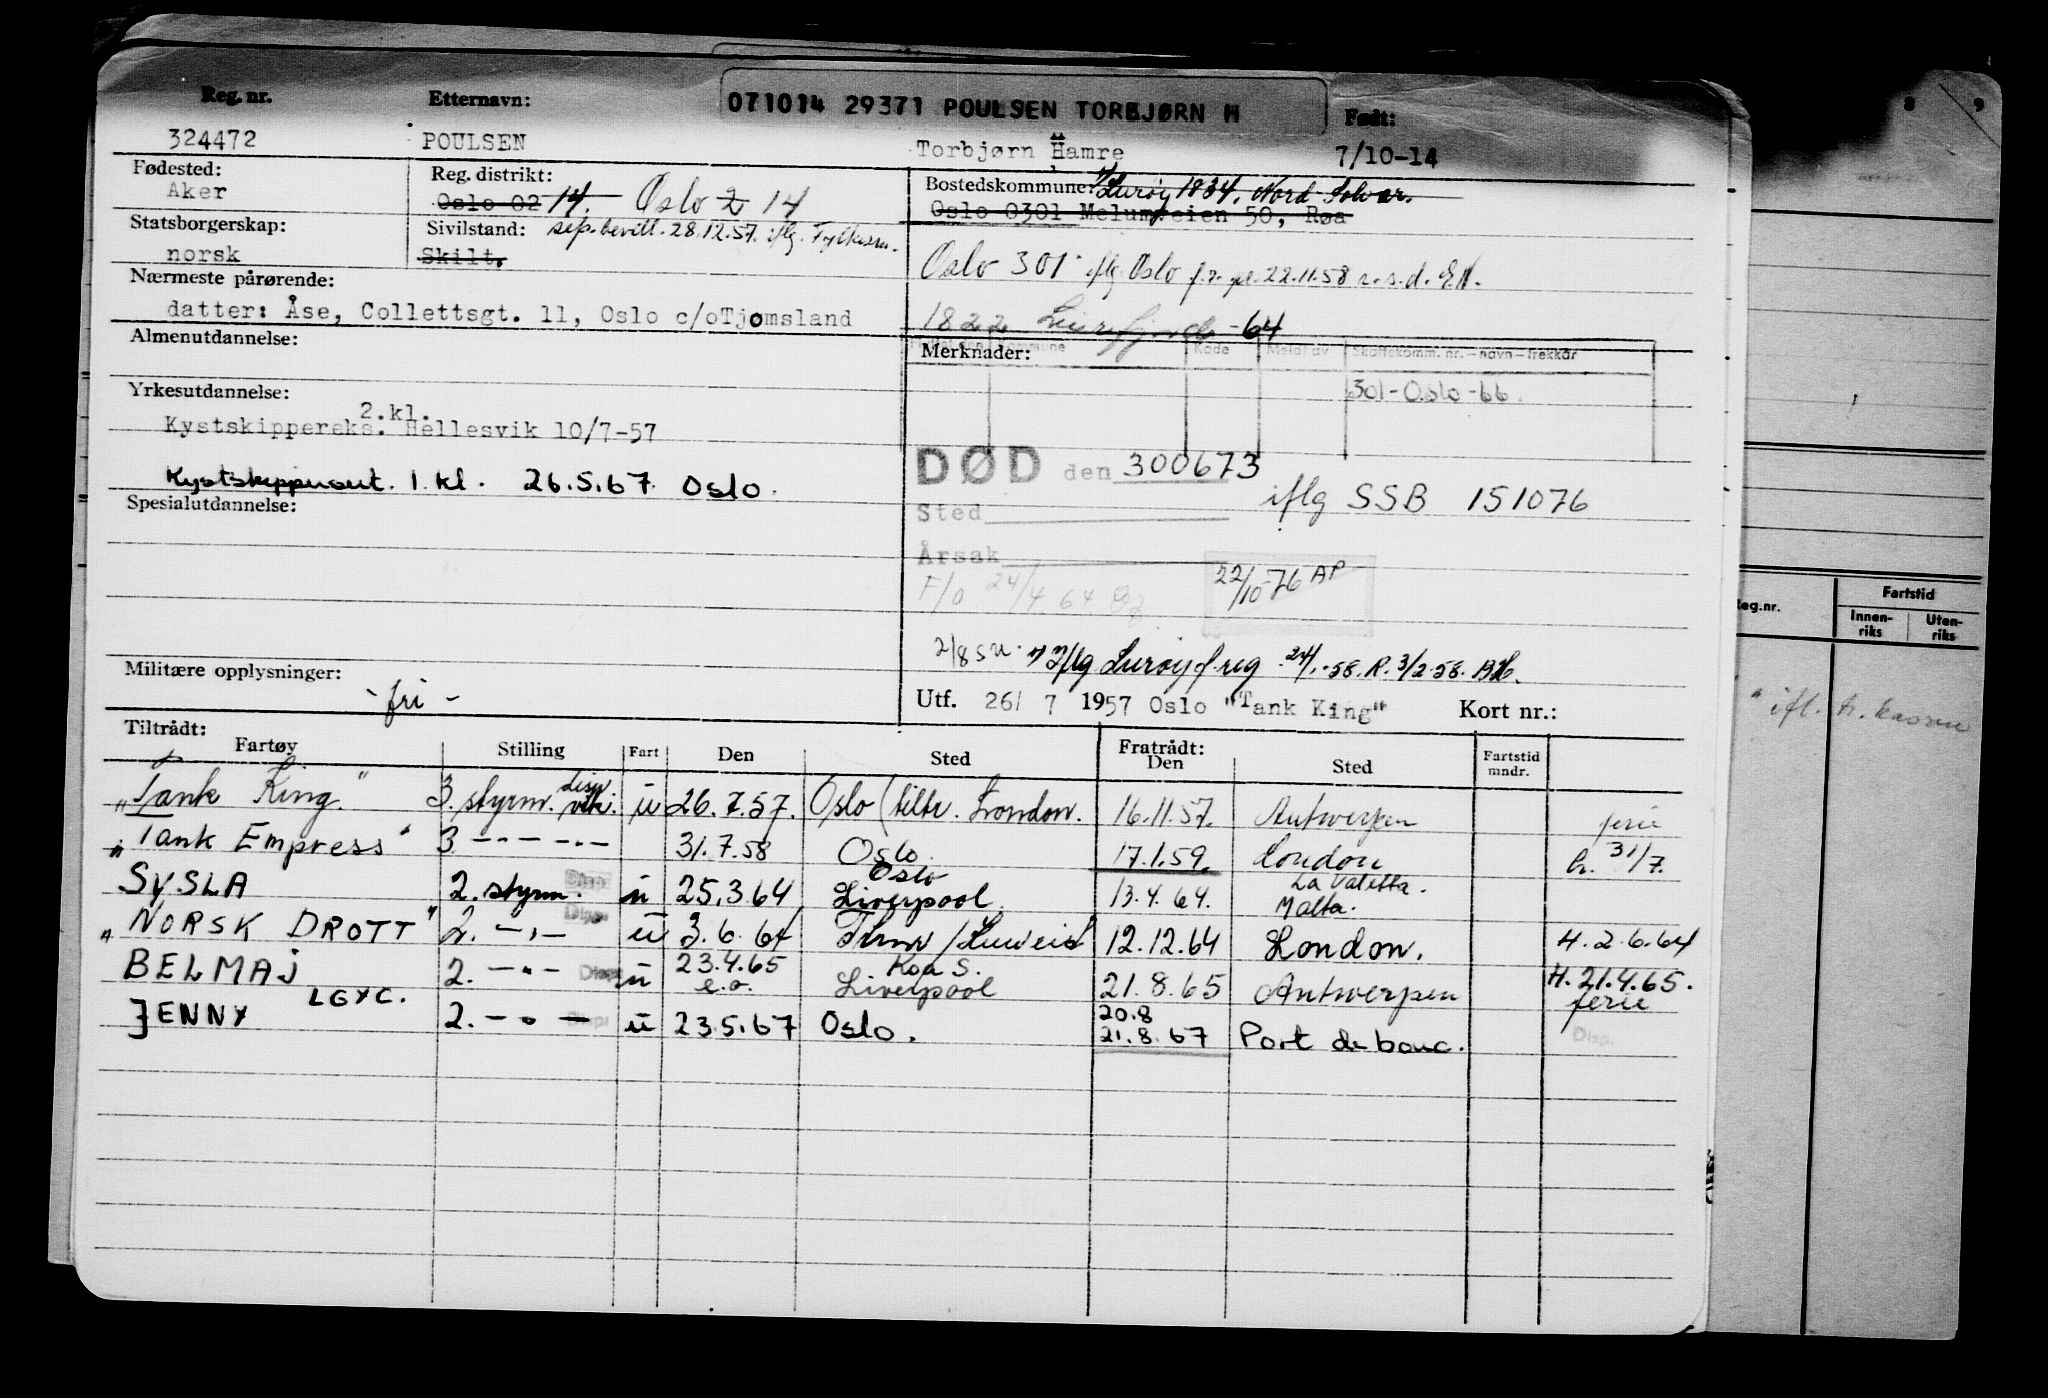 071014 29371 POULSEN TORBJØRN H
Reg. nr. Etternavn: Født:
324472 POULSEN Torbjørn Hamre 7/10-14
Fødested: Reg. distrikt: Bostedskommune: Lurøy 1834, Nord-Solvær.
Aker Oslo 02 14. Oslo 2 14 Oslo 0301 Melumveien 50, Røa
Statsborgerskap: Sivilstand: sep.bevill. 28.12.57. iflg. Fylkesm.
norsk Skilt. Oslo 301 iflg. Oslo f.r. pr. 22.11.58
Nærmeste pårørende:
datter: Åse, Collettsgt. 11, Oslo c/oTjømsland 1822 Leirfjord -64
Almenutdannelse: Merknader: Kommune Kode Meldt av Skattekomm. nr. – navn – trekkår
301-Oslo-66
Yrkesutdannelse:
2.kl.
Kystskippereks. Hellesvik 10/7-57
DØD den 300673
Kystskipperut. 1. kl. 26.5.67. Oslo.
iflg SSB 151076
Spesialutdannelse: Sted
Årsak
F/o 24/4.64 22/10-76 AP
2/8 su. Iflg Lurøy f.reg. 24/1.-58. R. 3/2-58. BH.
Militære opplysninger:
-fri-
Utf. 26/ 7 1957 Oslo "Tank King" Kort nr.:
Tiltrådt: Fratrådt:
Fartøy Stilling Fart Den Sted Den Sted Fartstid mndr.
„Tank King" 3. styrm. u 26.7.57. Oslo (tiltr. London. 16.11.57. Antwerpen ferie
„Tank Empress" 3 -"- -"- 31.7.58 Oslo 17.1.59. London h. 31/7.
SYSLA 2. styrm. Disp. u 25.3.64 Oslo Liverpool 13.4.64. La Valetta. Malta.
„NORSK DROTT" 2. -"- Disp. u 3.6.64 12.12.64 London. H. 2.6.64
BELMAJ 2. -"- Disp. u 23.4.65 e.o. Koa S. Liverpool 21.8.65 Antwerpen H. 21.4.65. ferie
JENNY LGYC. 2. -"- Disp. u 23.5.67 Oslo. 20.8 21.8.67 Port de bouc. Disp.
8 9
Reg.nr. Fartstid
Innenriks Utenriks
" ifl. tr. kassen